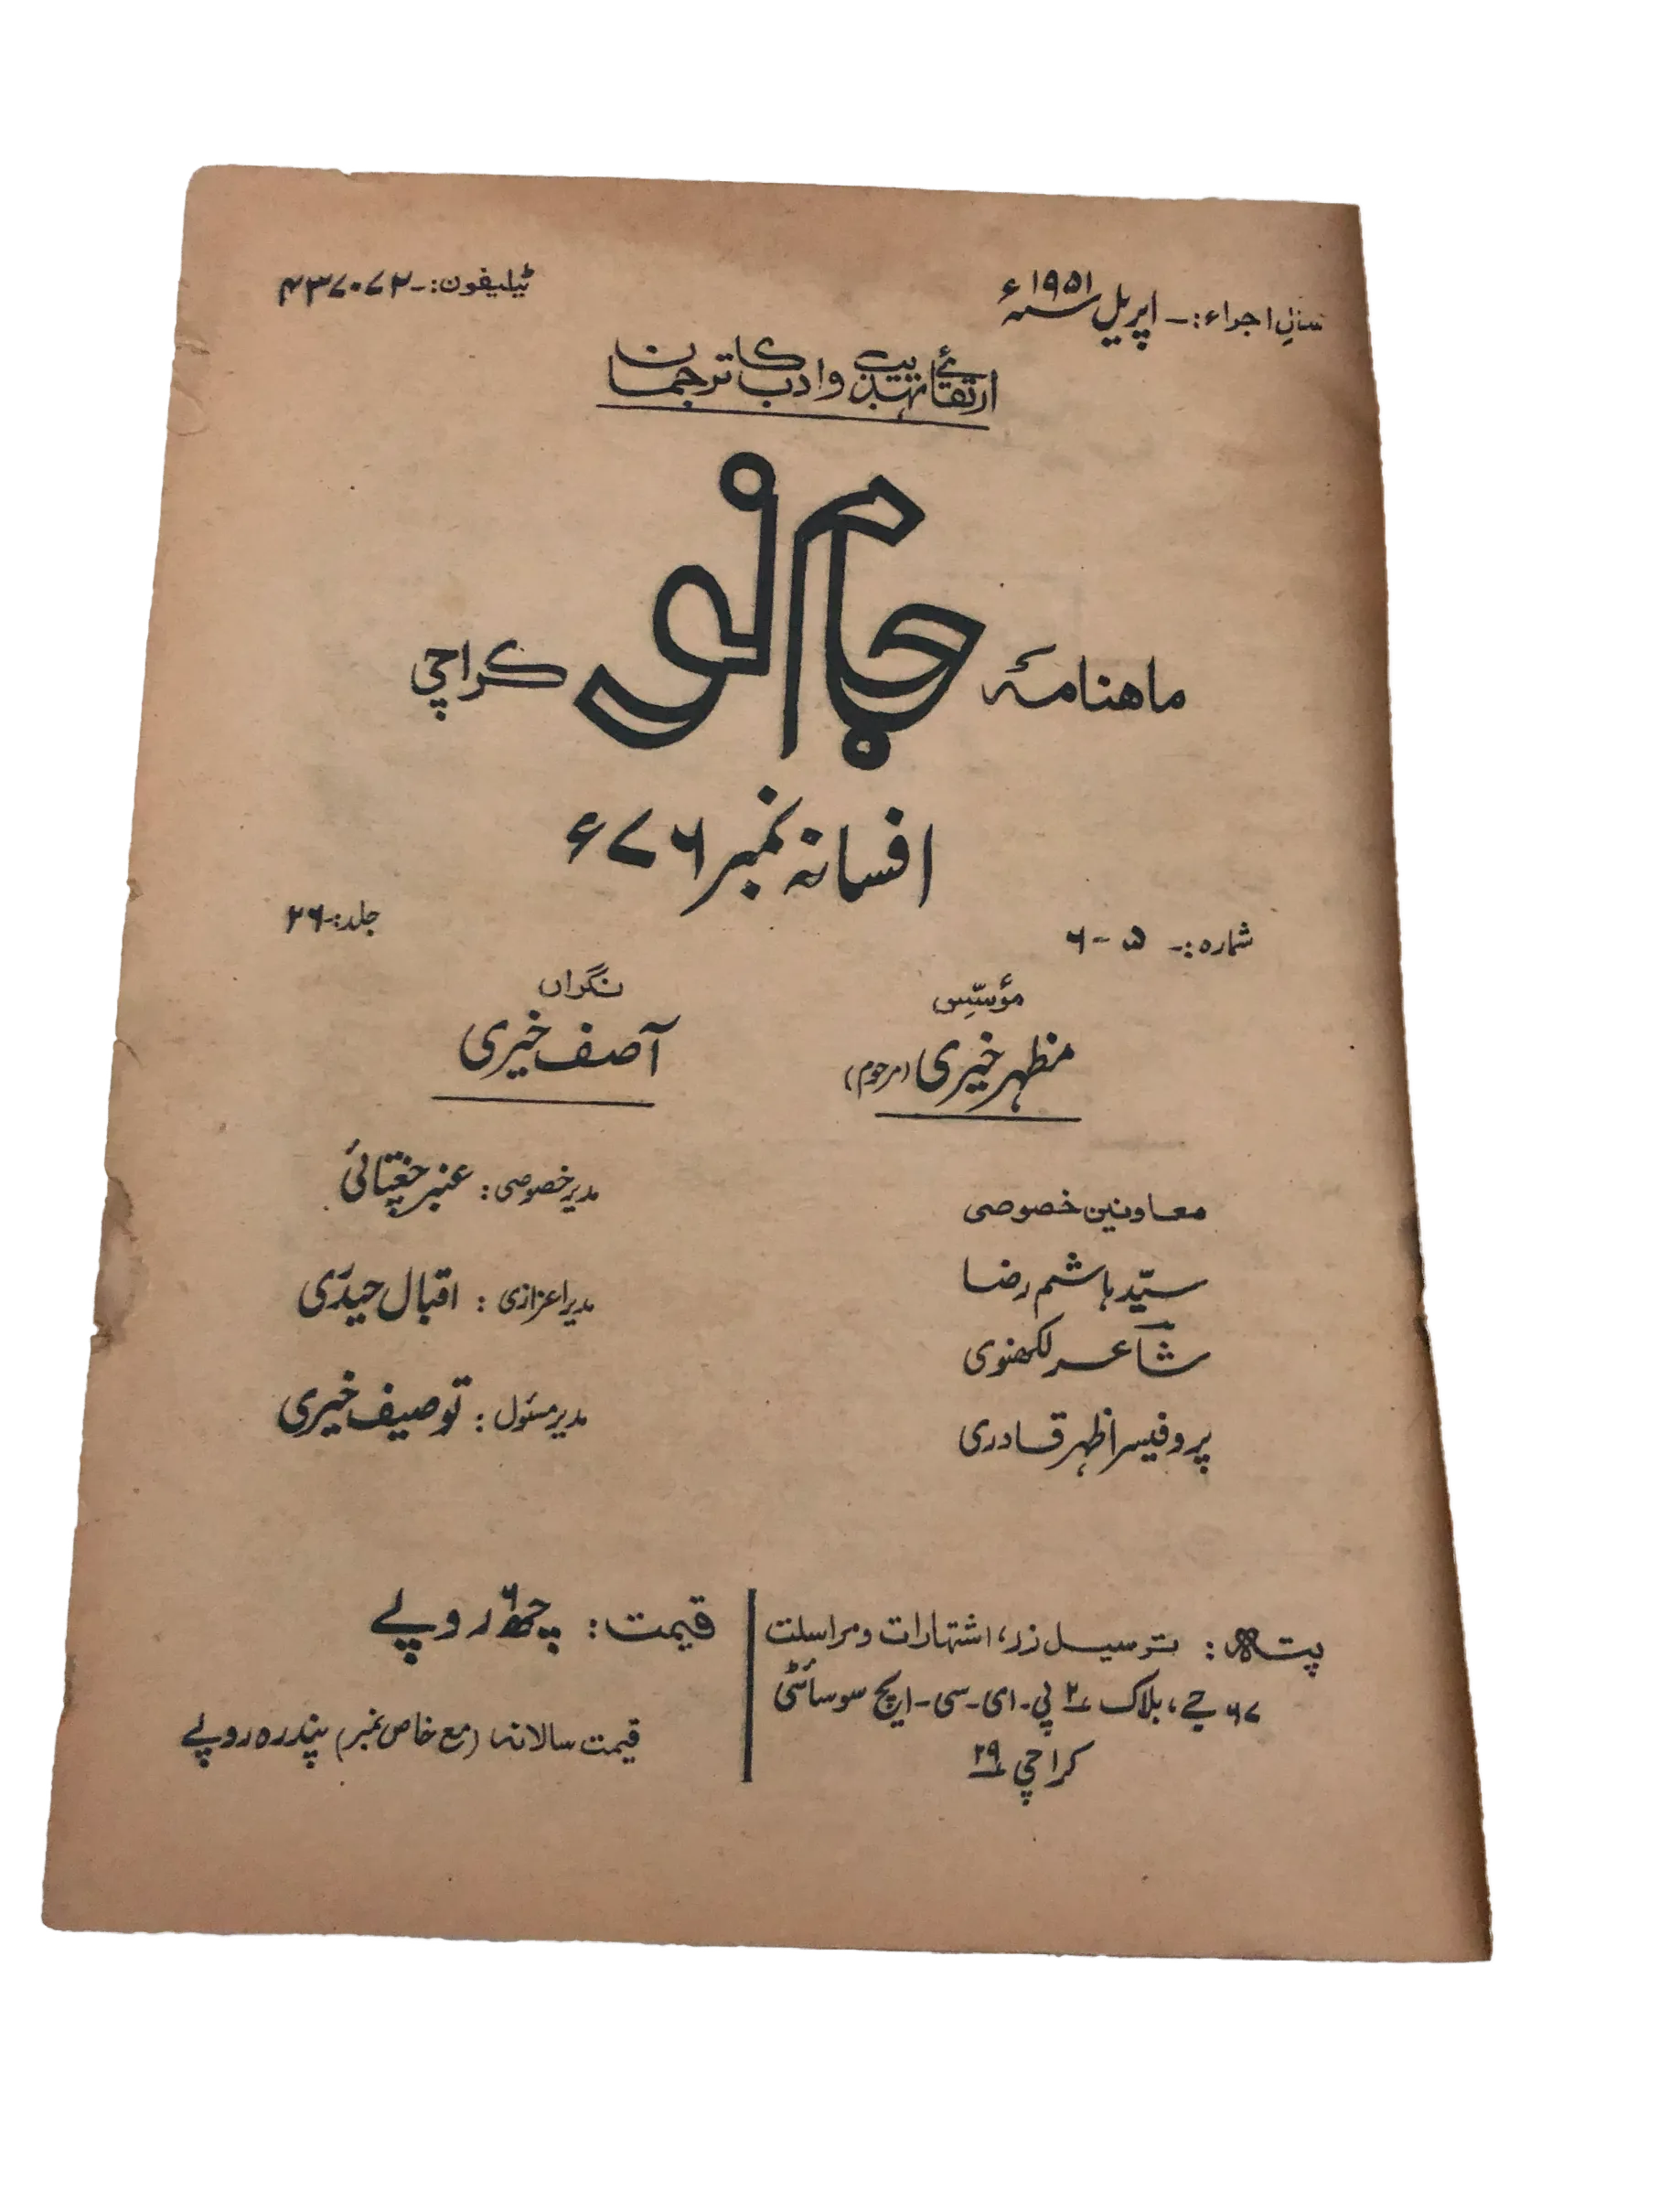 سالِ اجراء:۔ اپریل ۱۹۵۱ء
ٹیلیفون:۔ ۴۳۷۰۷۲
ارتقائے تہذیب و ادب کا ترجمان
ماہنامہ جامِ نو کراچی
افسانہ نمبر ۷۶ء
شمارہ:۔ ۵-۶
جلد:۔ ۲۶
مؤسّس
مظہر خیری (مرحوم)
نگراں
آصف خیری
معاونین خصوصی
سیّد ہاشم رضا
شاعر لکھنوی
پروفیسر اظہر قادری
مدیر خصوصی: عنبر چغتائی
مدیر اعزازی: اقبال حیدری
مدیر مسئول: توصیف خیری
پتہ: ترسیل زر، اشتہارات و مراسلت
۶۷ جے، بلاک ۲ پی۔ای۔سی۔ایچ سوسائٹی
کراچی ۲۹
قیمت: چھ ۶ روپے
قیمت سالانہ (مع خاص نمبر) پندرہ روپے